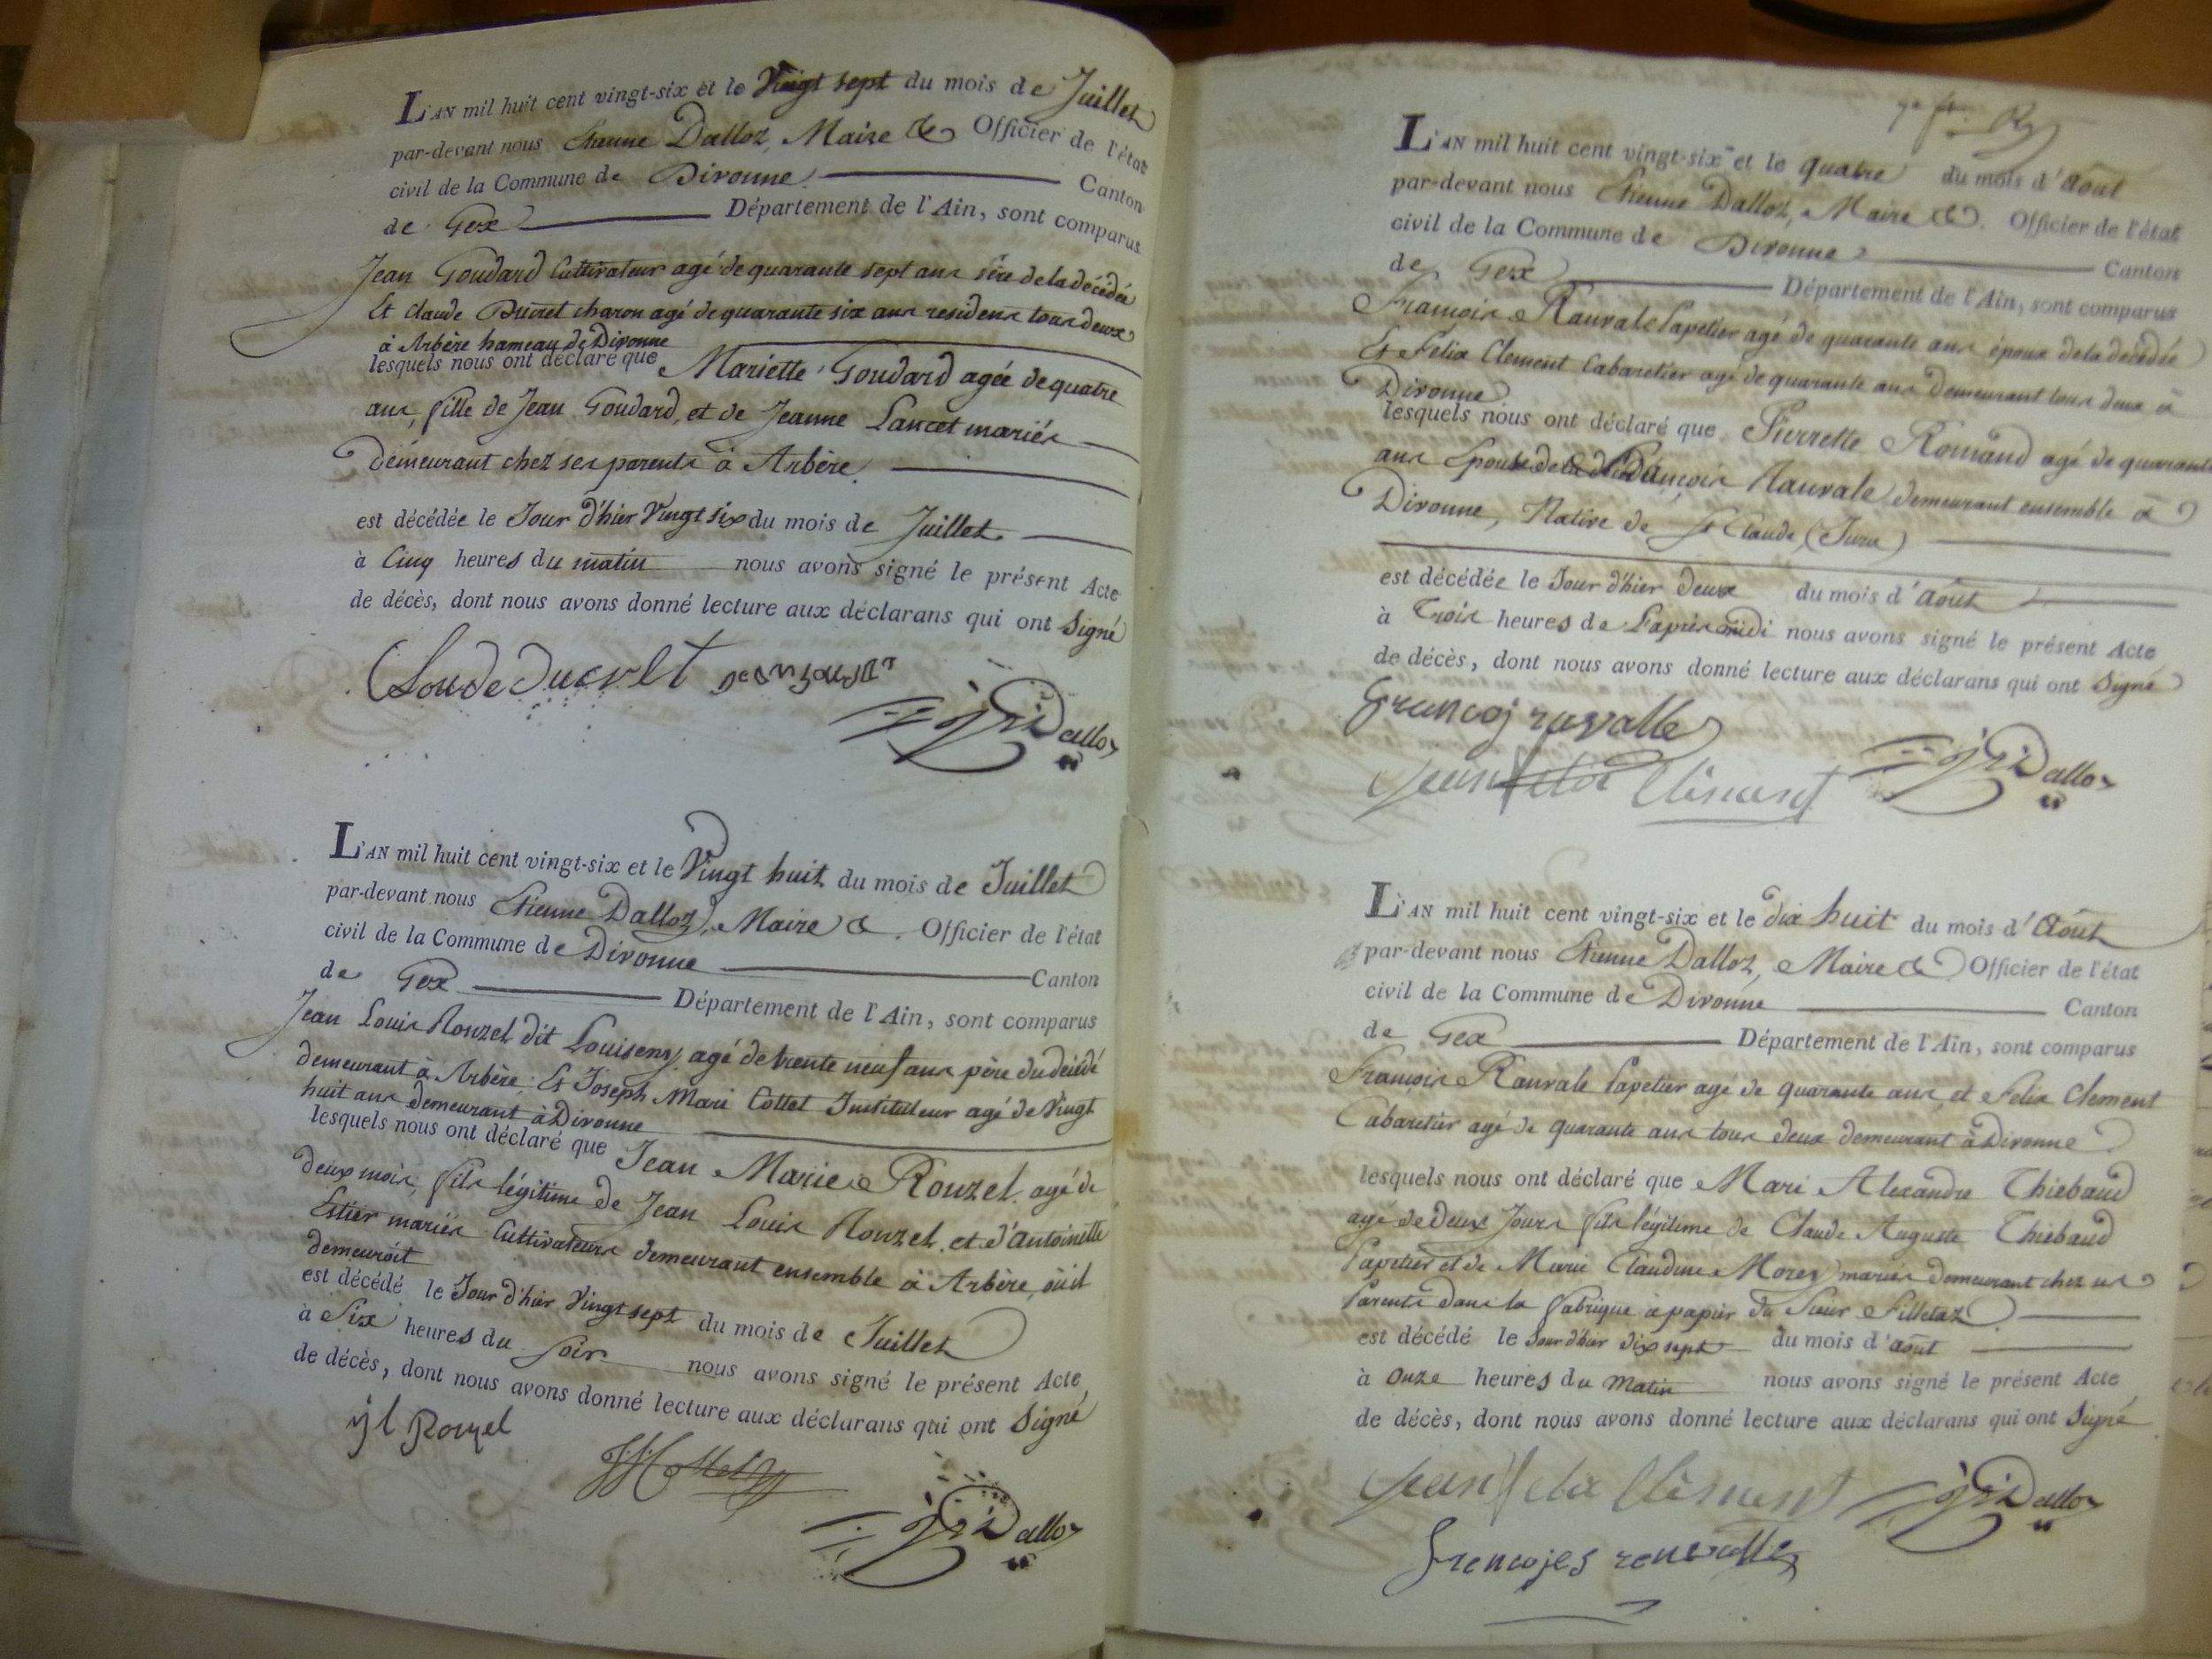 L'AN mil huit cent vingt-six et le Vingt sept du mois de Juillet
par-devant nous Etienne Dalloz, Maire & Officier de l'état
civil de la Commune de Divonne Canton
de Gex Département de l'Ain, sont comparus
Jean Goudard Cultivateur agé de quarante sept ans père de la décédée
Et Claude Ducret charon agé de quarante six ans residens tous deux
à Arbère hameau de Divonne
lesquels nous ont déclaré que Mariette Goudard agée de quatre
ans, fille de Jean Goudard, et de Jeanne Lancet mariés
demeurant chez ses parents à Arbère.
est décédée le Jour d'hier Vingt six du mois de Juillet
à Cinq heures du matin nous avons signé le présent Acte
de décès, dont nous avons donné lecture aux déclarans qui ont Signé
Dalloz
L'AN mil huit cent vingt-six et le Vingt huit du mois de Juillet
par-devant nous Etienne Dalloz, Maire &. Officier de l'état
civil de la Commune de Divonne Canton
de Gex Département de l'Ain, sont comparus
Jean Louis Rouzel dit Louiseny, agé de trente neuf ans père du décédé
demeurant à Arbère; Et Joseph Mari Cottet Instituteur agé de Vingt
huit ans demeurant à Divonne
lesquels nous ont déclaré que Jean Marie Rouzel agé de
deux mois, fils légitime de Jean Louis Rouzel et d'Antoinette
Estier mariés Cultivateurs demeurant ensemble à Arbère, où il
demeuroit
est décédé le Jour d'hier Vingt sept du mois de Juillet
à Six heures du soir nous avons signé le présent Acte
de décès, dont nous avons donné lecture aux déclarans qui ont Signé
jl Rouzel
Dalloz
L'AN mil huit cent vingt-six et le quatre du mois d'Aout
par-devant nous Etienne Dalloz, Maire &. Officier de l'état
civil de la Commune de Divonne Canton
de Gex Département de l'Ain, sont comparus
François Rauvale Papetier agé de quarante ans époux de la décédée
Et Felix Clement Cabaretier agé de quarante ans demeurant tous deux à
Divonne
lesquels nous ont déclaré que Pierrette Romand agé de quarante
ans Epouse de François Rauvale demeurant ensemble à
Divonne, Native de St Claude (Jura)
est décédée le Jour d'hier deux du mois d'Aout
à Trois heures de L'après midi nous avons signé le présent Acte
de décès, dont nous avons donné lecture aux déclarans qui ont Signé
Dalloz
L'AN mil huit cent vingt-six et le dix huit du mois d'Aout
par-devant nous Etienne Dalloz, Maire & Officier de l'état
civil de la Commune de Divonne Canton
de Gex Département de l'Ain, sont comparus
François Rauvale Papetier agé de quarante ans, et Felix Clement
Cabaretier agé de quarante ans tous deux demeurant à Divonne
lesquels nous ont déclaré que Mari Alexandre Thiebaud
agé de deux Jours fils légitime de Claude Auguste Thiebaud
Papetier et de Marie Claudine Morey mariés demeurant chez ses
Parents dans la fabrique à papier du Sieur Filletaz
est décédé le Jour d'hier dix sept du mois d'Aout
à Onze heures du Matin nous avons signé le présent Acte
de décès, dont nous avons donné lecture aux déclarans qui ont Signé
Dalloz